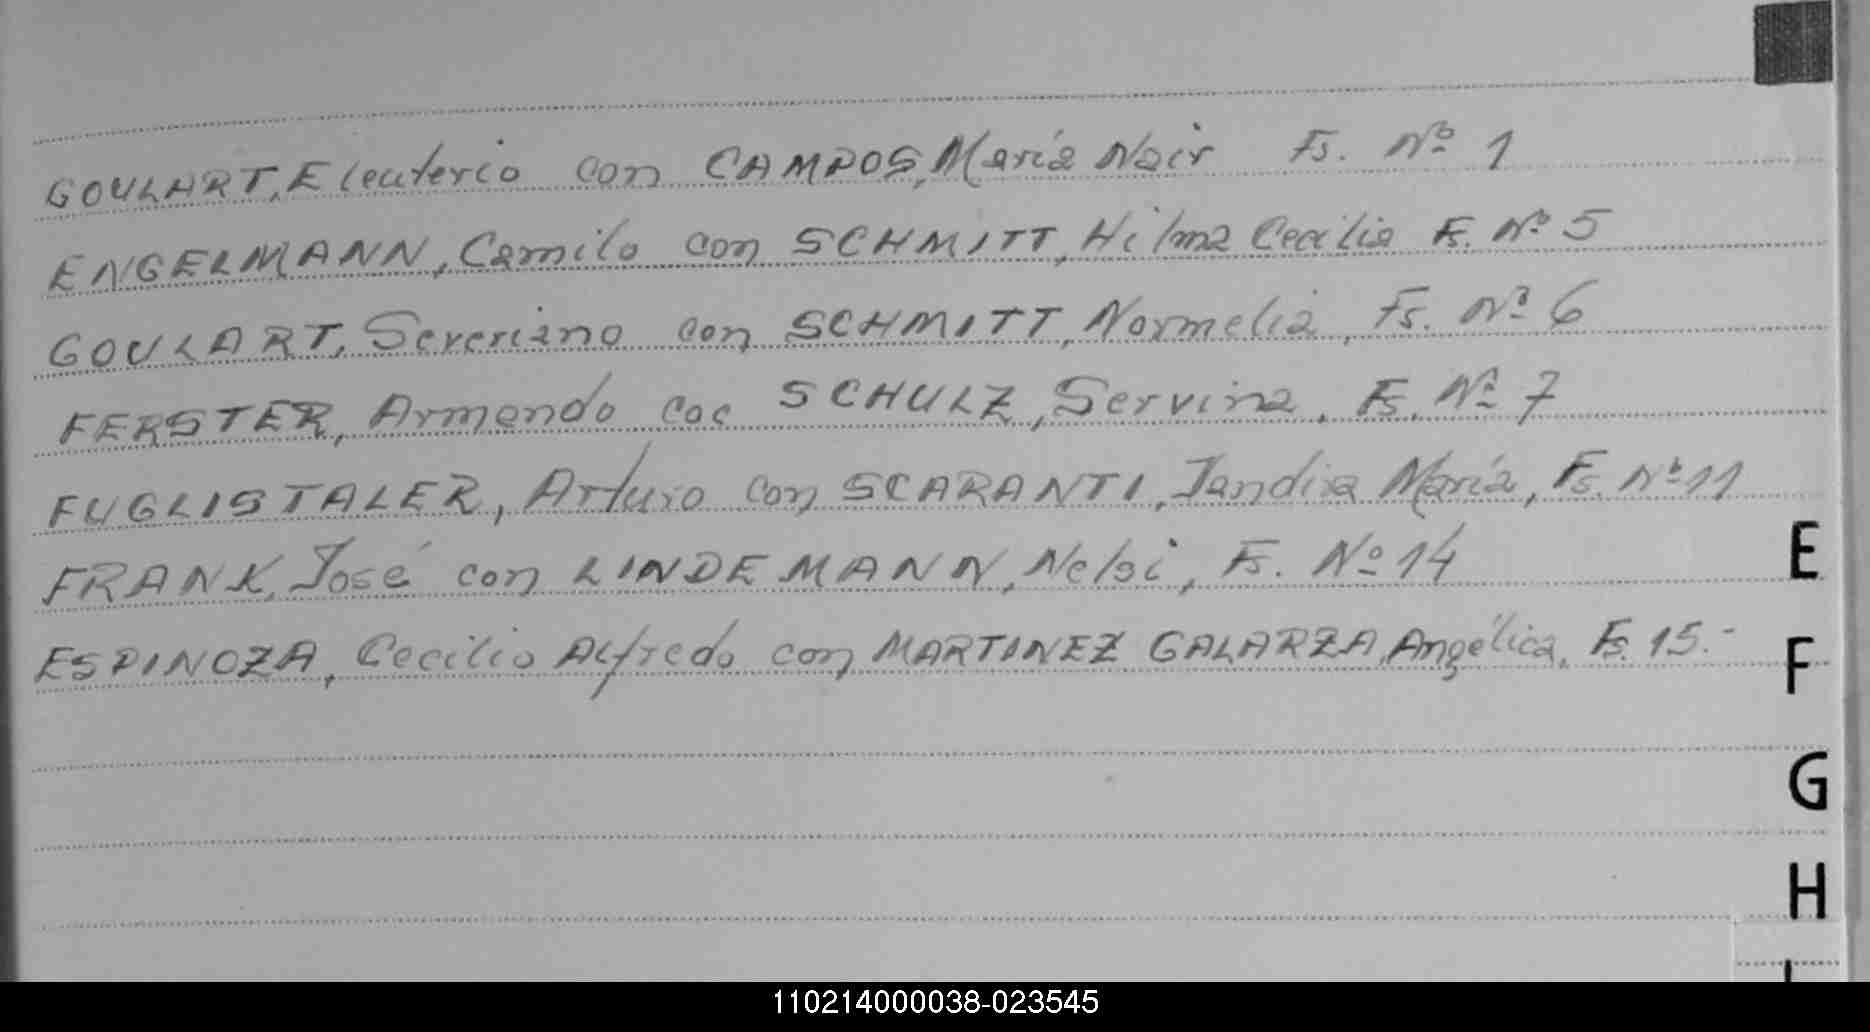 GOULART, Eleuterio con CAMPOS, María Nair Fs. Nº 1
ENGELMANN, Camilo con SCHMITT, Hilma Cecilia Fs. Nº 5
GOULART, Severiano con SCHMITT, Normelia, Fs. Nº 6
FERSTER, Armando con SCHULZ, Servina, Fs. Nº 7
FUGLISTALER, Arturo con SCARANTI, Jandira María, Fs. Nº 11
FRANK, José con LINDEMANN, Nelsi, Fs. Nº 14
ESPINOZA, Cecilio Alfredo con MARTINEZ GALARZA, Angélica, Fs. 15.-
E
F
G
H
110214000038-023545